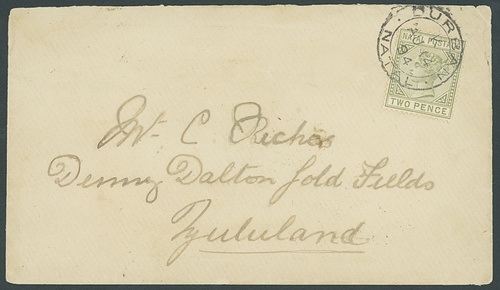 DURBAN
NATAL
NATAL POSTAGE
TWO PENCE
Mr. C Riches
Denny Dalton Gold Fields
Zululand